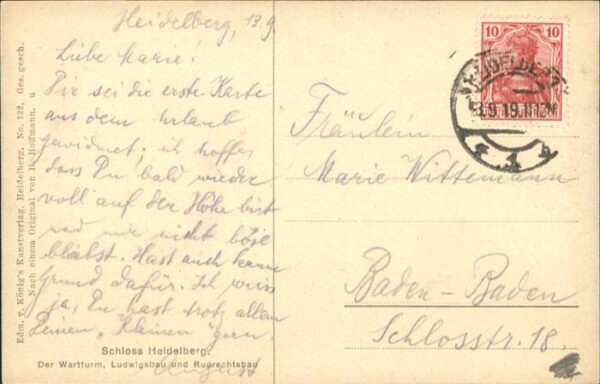 Heidelberg, 13.9.
Liebe Marie!
Dir sei die erste Karte
aus dem Urlaub
gewidmet; ich hoffe,
dass Du bald wieder
voll auf der Höhe bist
und mir nicht böse
bleibst. Hast auch kaum
Grund dafür. Ich weiss
ja, Du hast trotz allem
Deinen „Kleinen" gern.
August
Schloss Heidelberg.
Der Wartturm, Ludwigsbau und Ruprechtsbau
Edm. v. König's Kunstverlag, Heidelberg, No. 122. Ges. gesch.
Nach einem Original von H. Hoffmann.
10 10
HEIDELBERG
13.9.19.
1
Fräulein
Marie Wittemann
Baden-Baden
Schlosstr. 18.